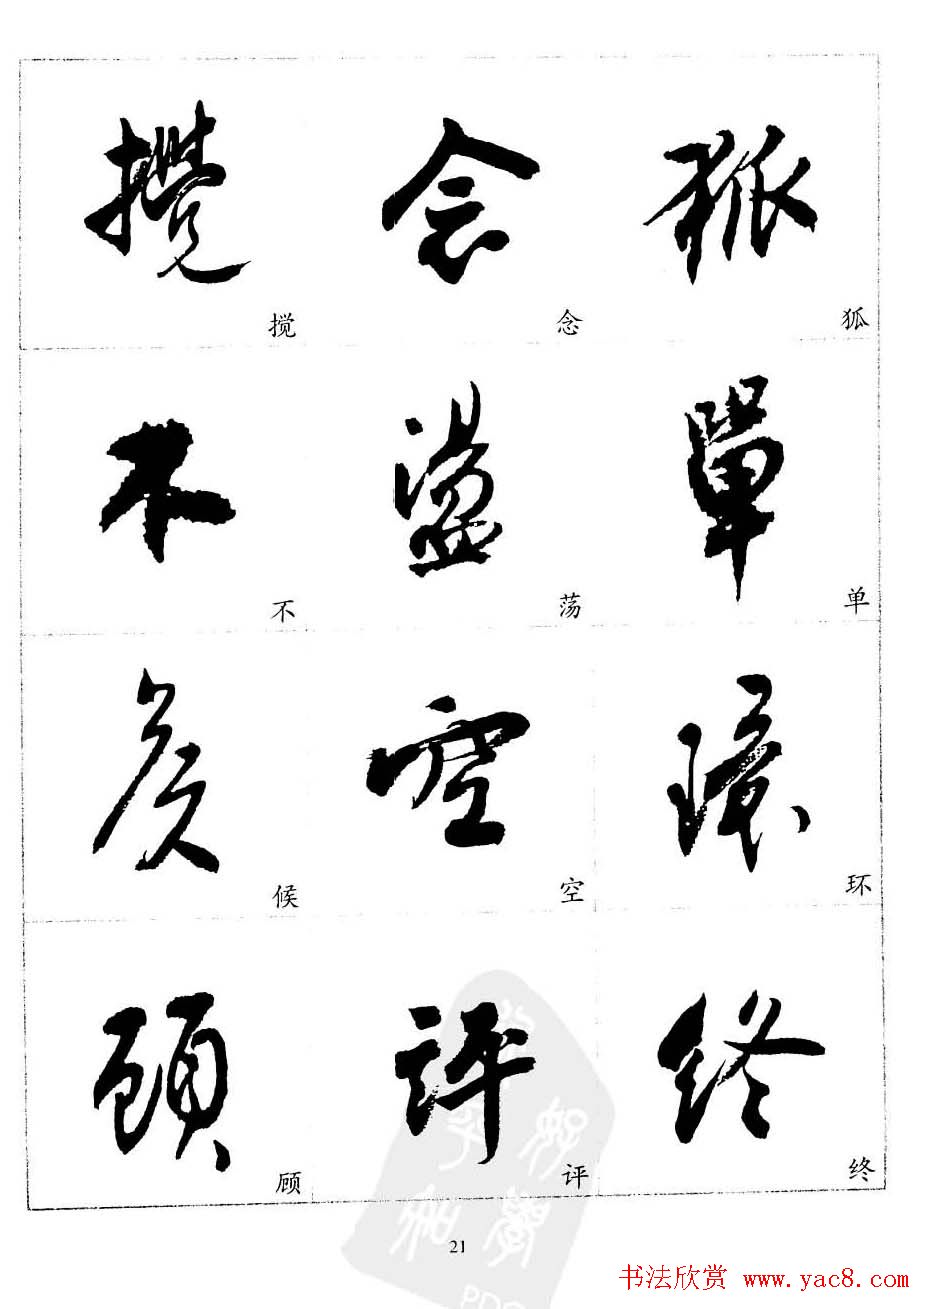 攪 念 狐
搅 念 狐
不 盪 單
不 荡 单
矦 空 環
候 空 环
顧 評 終
顾 评 终
21
书法欣赏 www.yac8.com